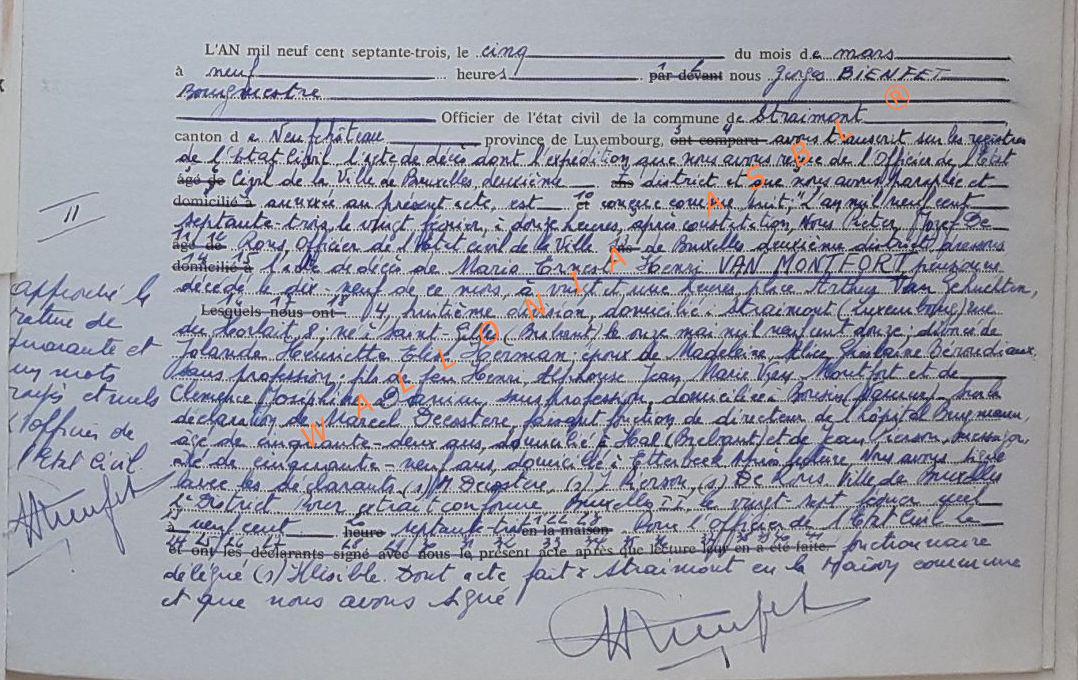 L'AN mil neuf cent septante-trois, le cinq du mois de mars
à neuf heures par devant nous Georges BIENFET
Bourgmestre
Officier de l'état civil de la commune de Straimont
canton de Neufchâteau province de Luxembourg, ont comparu avons transcrit sur les registres
de l'Etat Civil l'acte de décès dont l'expédition que nous avons reçue de l'Officier de l'Etat
âgé de Civil de la Ville de Bruxelles, deuxième district et que nous avons paraphée et
domicilié à annexée au présent acte, est et conçue comme suit: "L'an mil neuf cent
septante-trois, le vingt février, à douze heures, après constatation, Nous Pieter, Jozef De
âgé de Rons, Officier de l'état civil de la Ville de Bruxelles deuxième district dressons
domicilié à l'acte de décès de Marie Ernest Henri VAN MONTFORT pensionné
décédé le dix-neuf de ce mois, à vingt et une heures place Arthur Van Gehuchten,
Lesquels nous ont 4, huitième division, domicilié à Straimont (Luxembourg) rue
du 8, né à Saint-Gilles (Brabant) le onze mai mil neuf cent douze, divorcé de
Jolande Henriette Elise Haerman; époux de Madeleine, Alice, Ghislaine
sans profession; fils de feu Henri, Alphonse Jean Marie Van Montfort et de
Clémence Josephine sans profession, domiciliée à Sur la
déclaration de Marcel Decostere, faisant fonction de directeur de l'hôpital Brugmann,
âgé de cinquante-deux ans, domicilié à Hal (Brabant) et de Jean
âgé de cinquante-neuf ans, domicilié à Etterbeek Après lecture, Nous avons signé
avec les déclarants (s) M Decostere, (s) J. (s) De Rons. Ville de Bruxelles
2e District Pour extrait conforme Bruxelles II, le vingt-sept février mil
à neuf cent heure septante-trois en la maison Pour l'Officier de l'Etat Civil Le
et ont les déclarants signé avec nous le présent acte après que lecture leur en a été faite. fonctionnaire
délégué (s) Illisible. Dont acte fait à Straimont en la Maison communne
et que nous avons signé
II
approuvé la
rature de
quarante et
un mots
rayés et nuls
l'officier de
l'Etat Civil.
WALLONIA ASBL ®